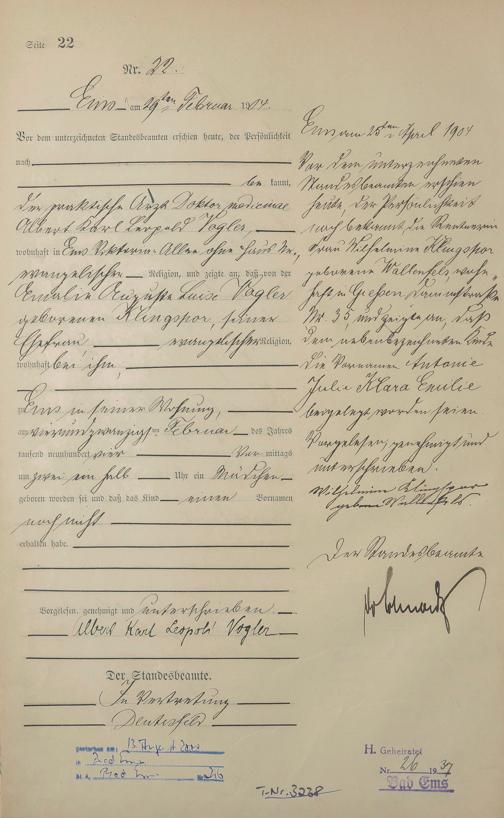 Seite 22
Nr. 22.
Ems am 29ten Februar 1904.
Vor dem unterzeichneten Standesbeamten erschien heute, der Persönlichkeit
nach
be kannt,
der praktische Arzt Doktor medicinae
Albert Karl Leopold Vogler,
wohnhaft in Ems Viktoria-Allee ohne Haus Nr.,
evangelischer Religion, und zeigte an, daß von der
Emilie Auguste Luise Vogler
geborenen Klingspor, seiner
Ehefrau, evangelischer Religion,
wohnhaft bei ihm,
Ems in seiner Wohnung,
am vierundzwanzigsten Februar des Jahres
tausend neunhundert vier Vor mittags
um zwei ein halb Uhr ein Mädchen
geboren worden sei und daß das Kind einen Vornamen
noch nicht
erhalten habe.
Vorgelesen, genehmigt und unterschrieben
Albert Karl Leopold Vogler
Der Standesbeamte.
In Vertretung
Ems am 25ten April 1904
Vor dem unterzeichneten
Standesbeamten erschien
heute, der Persönlichkeit
nach bekannt, die Rentnerin
Frau Wilhelmine Klingspor
geborene Wallenfels, wohn-
haft in Gießen,
Nr 35 und zeigte an, daß
dem nebenbezeichneten Kinde
die Vornamen Antonie
Julie Klara Emilie
beigelegt worden seien.
Vorgelesen, genehmigt und
unterschrieben.
Wilhelmine Klingspor
geborne Wallenfels.
Der Standesbeamte
gestorben am:
in Bad Ems
St. A. Bad Ems
H. Geheiratet
Nr. 26 1937
Bad Ems
T-Nr. 3238